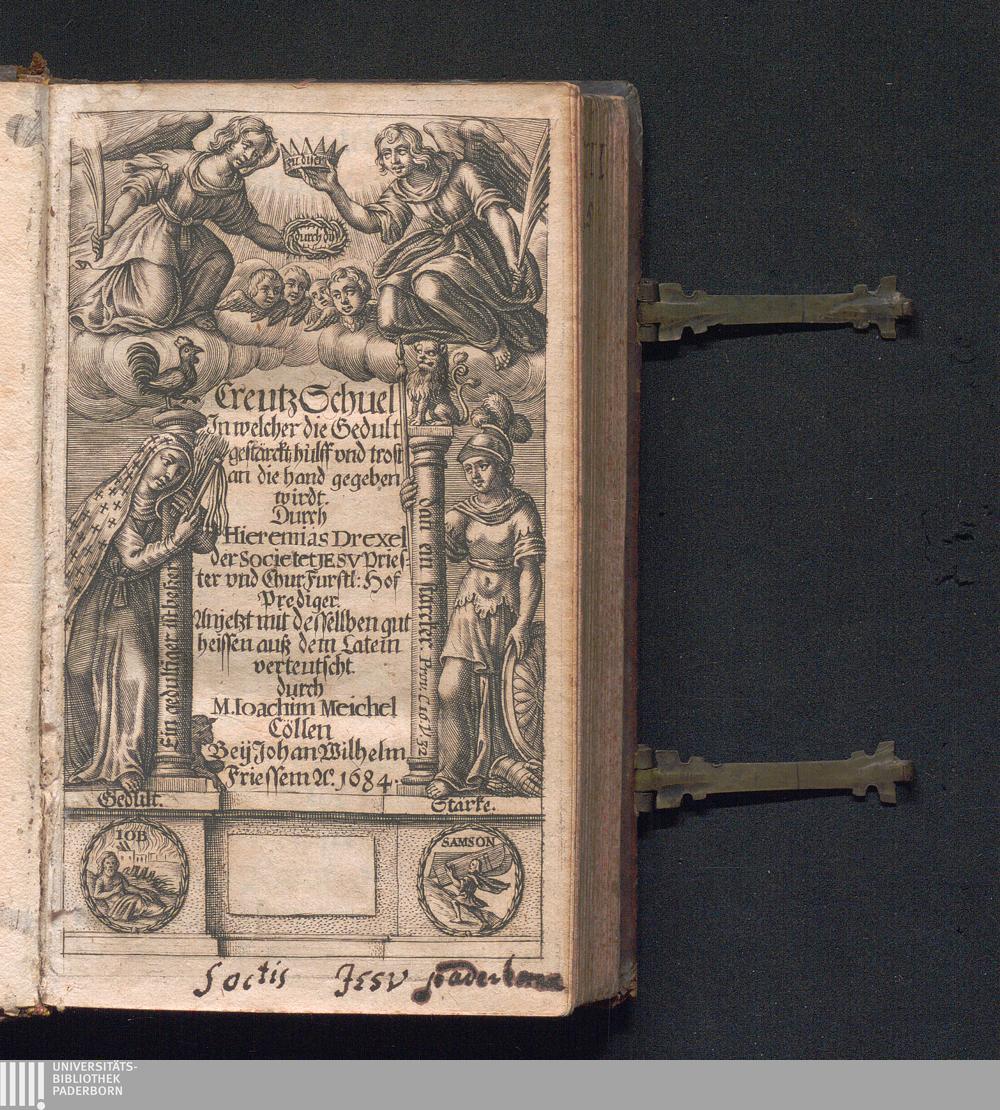 zu diser
durch die
Creutz Schuel
In welcher die Gedult
gestärckt, hülff vnd trost
an die hand gegeben
wirdt.
Durch
Hieremias Drexel
der Societet JESV Pries-
ter vnd Chur Fürstl: Hof
Prediger
Anjetzt mit desselben gut
heissen auß dem Latein
verteutscht
durch
M. Ioachim Meichel
Cöllen
Beÿ Johan Wilhelm
Friessem Aº. 1684.
Ein gedultiger ist besser
dan ein starcker. Prov. C.16.V.32
Gedult.
Stärke.
IOB
SAMSON
Soctis Jesv paderbornæ
UNIVERSITÄTS-
BIBLIOTHEK
PADERBORN